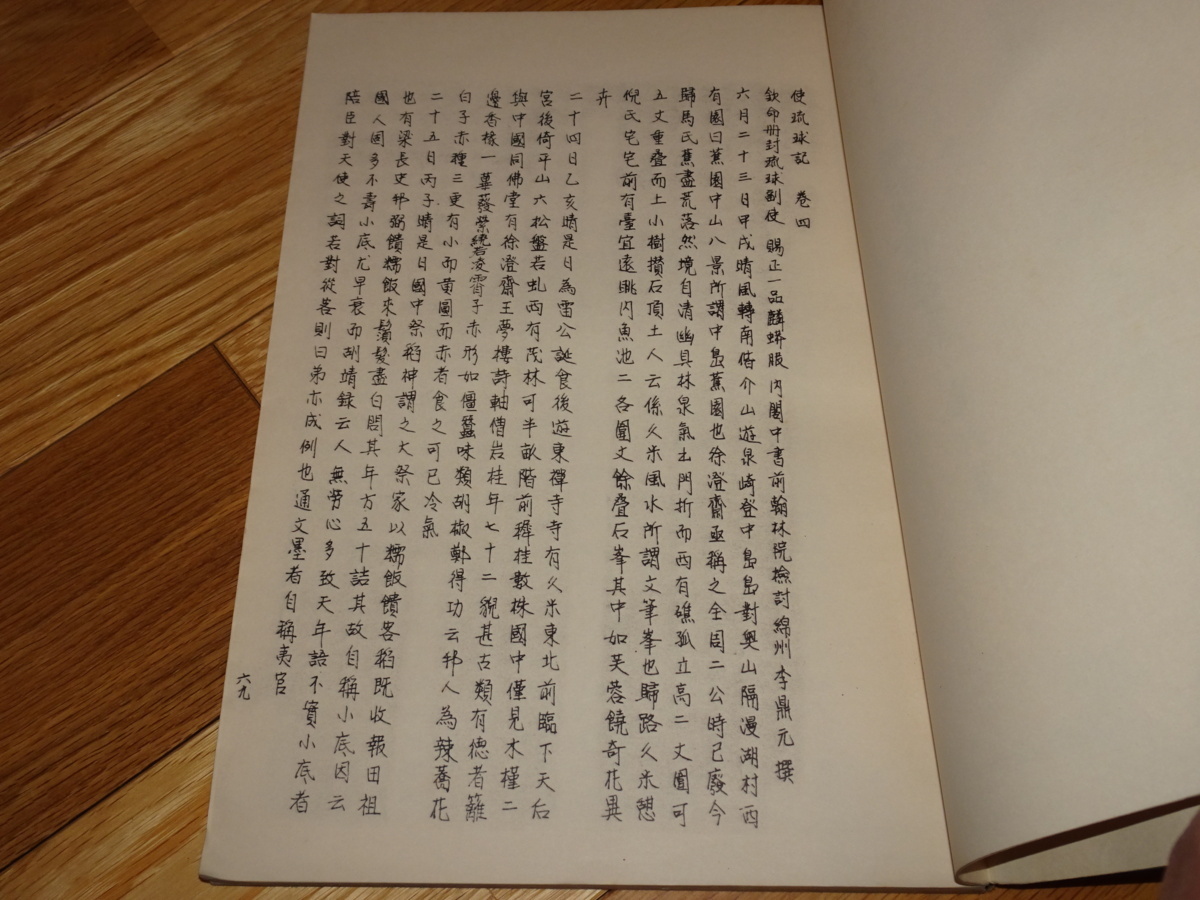 使琉球記 卷四
欽命册封琉球副使 賜正一品麟蟒服內閣中書前翰林院檢討綿州李鼎元撰
六月二十三日甲戌晴風轉南偕介山遊泉崎登中島島對奧山隔漫湖村西
有園曰蕉園中山八景所謂中島蕉園也徐澄齋亟稱之全周二公時已廢今
歸馬氏蕉盡荒落然境自清幽具林泉氣土門折而西有礁孤立高二丈圍可
五丈重疊而土小樹攢石頂土人云係久米風水所謂文筆峯也歸路久米憩
倪氏宅宅前有臺宜遠眺內魚池二各圍丈餘疊石峯其中如芙蓉饒奇花異
卉
二十四日乙亥晴是日為雷公誕食後遊東禪寺寺有久米東北前臨下天后
宮後倚平山六松盤若虬西有茂林可半畝階前稺桂數株國中僅見木槿二
與中國同佛堂有徐澄齋王夢樓詩軸僧岩桂年七十二貌甚古類有德者籬
邊香椽一蔓發紫繞若凌霄子赤形如僵蠶味類胡椒鄭得功云邦人為辣蕎花
白子赤種三更有小而黃圓而赤者食之可已冷氣
二十五日丙子晴是日國中祭稻神謂之大祭家以糯飯饋客稻既收報田祖
也有梁長史邦弼饋糯飯來鬚髮盡白問其年方五十詰其故自稱小底因云
國人固多不壽小底尤早衰而胡靖錄云人無勞心多致天年語不實小底者
陪臣對天使之詞若對從客則曰弟亦成例也通文墨者自稱夷官
六九